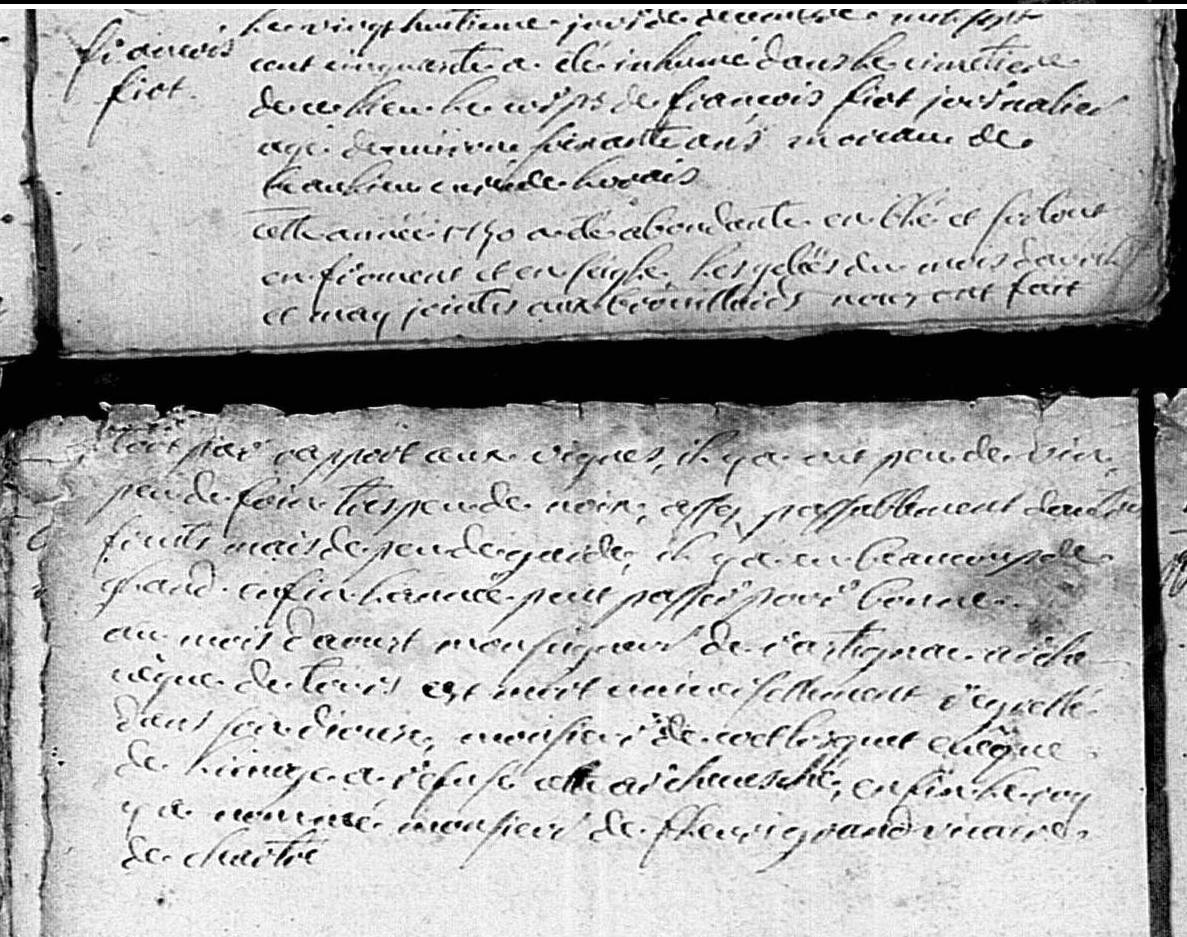 françois
fiot
Le vingt huitieme jour de decembre mil sept
cent cinquante a été inhumé dans le cimetiere
de ce lieu le corps de françois fiot journalier
agé d'environ soixante ans
beaulieu
cette année 1750 a été abondante en blé et surtout
en froment et en seigle, les gelées du mois d'avril
et may jointes aux brouillards nous ont fait
tort par rapport aux vignes, il y a eut peu de vin,
peu de foin tres peu de noix, assez passablement dautre
fruits mais de peu de garde, il y a eu beaucoup de
gland enfin l'année peut passer pour bonne
au mois d'aoust monseigneur de rastignac arche
vêque de tours est mort universellement regretté
dans son diocese, monsieur de coetlosquet evêque
de limoge a refusé cette archevesché, enfin le roy
y a nommé monsieur de fleuri grand vicaire
de chartre